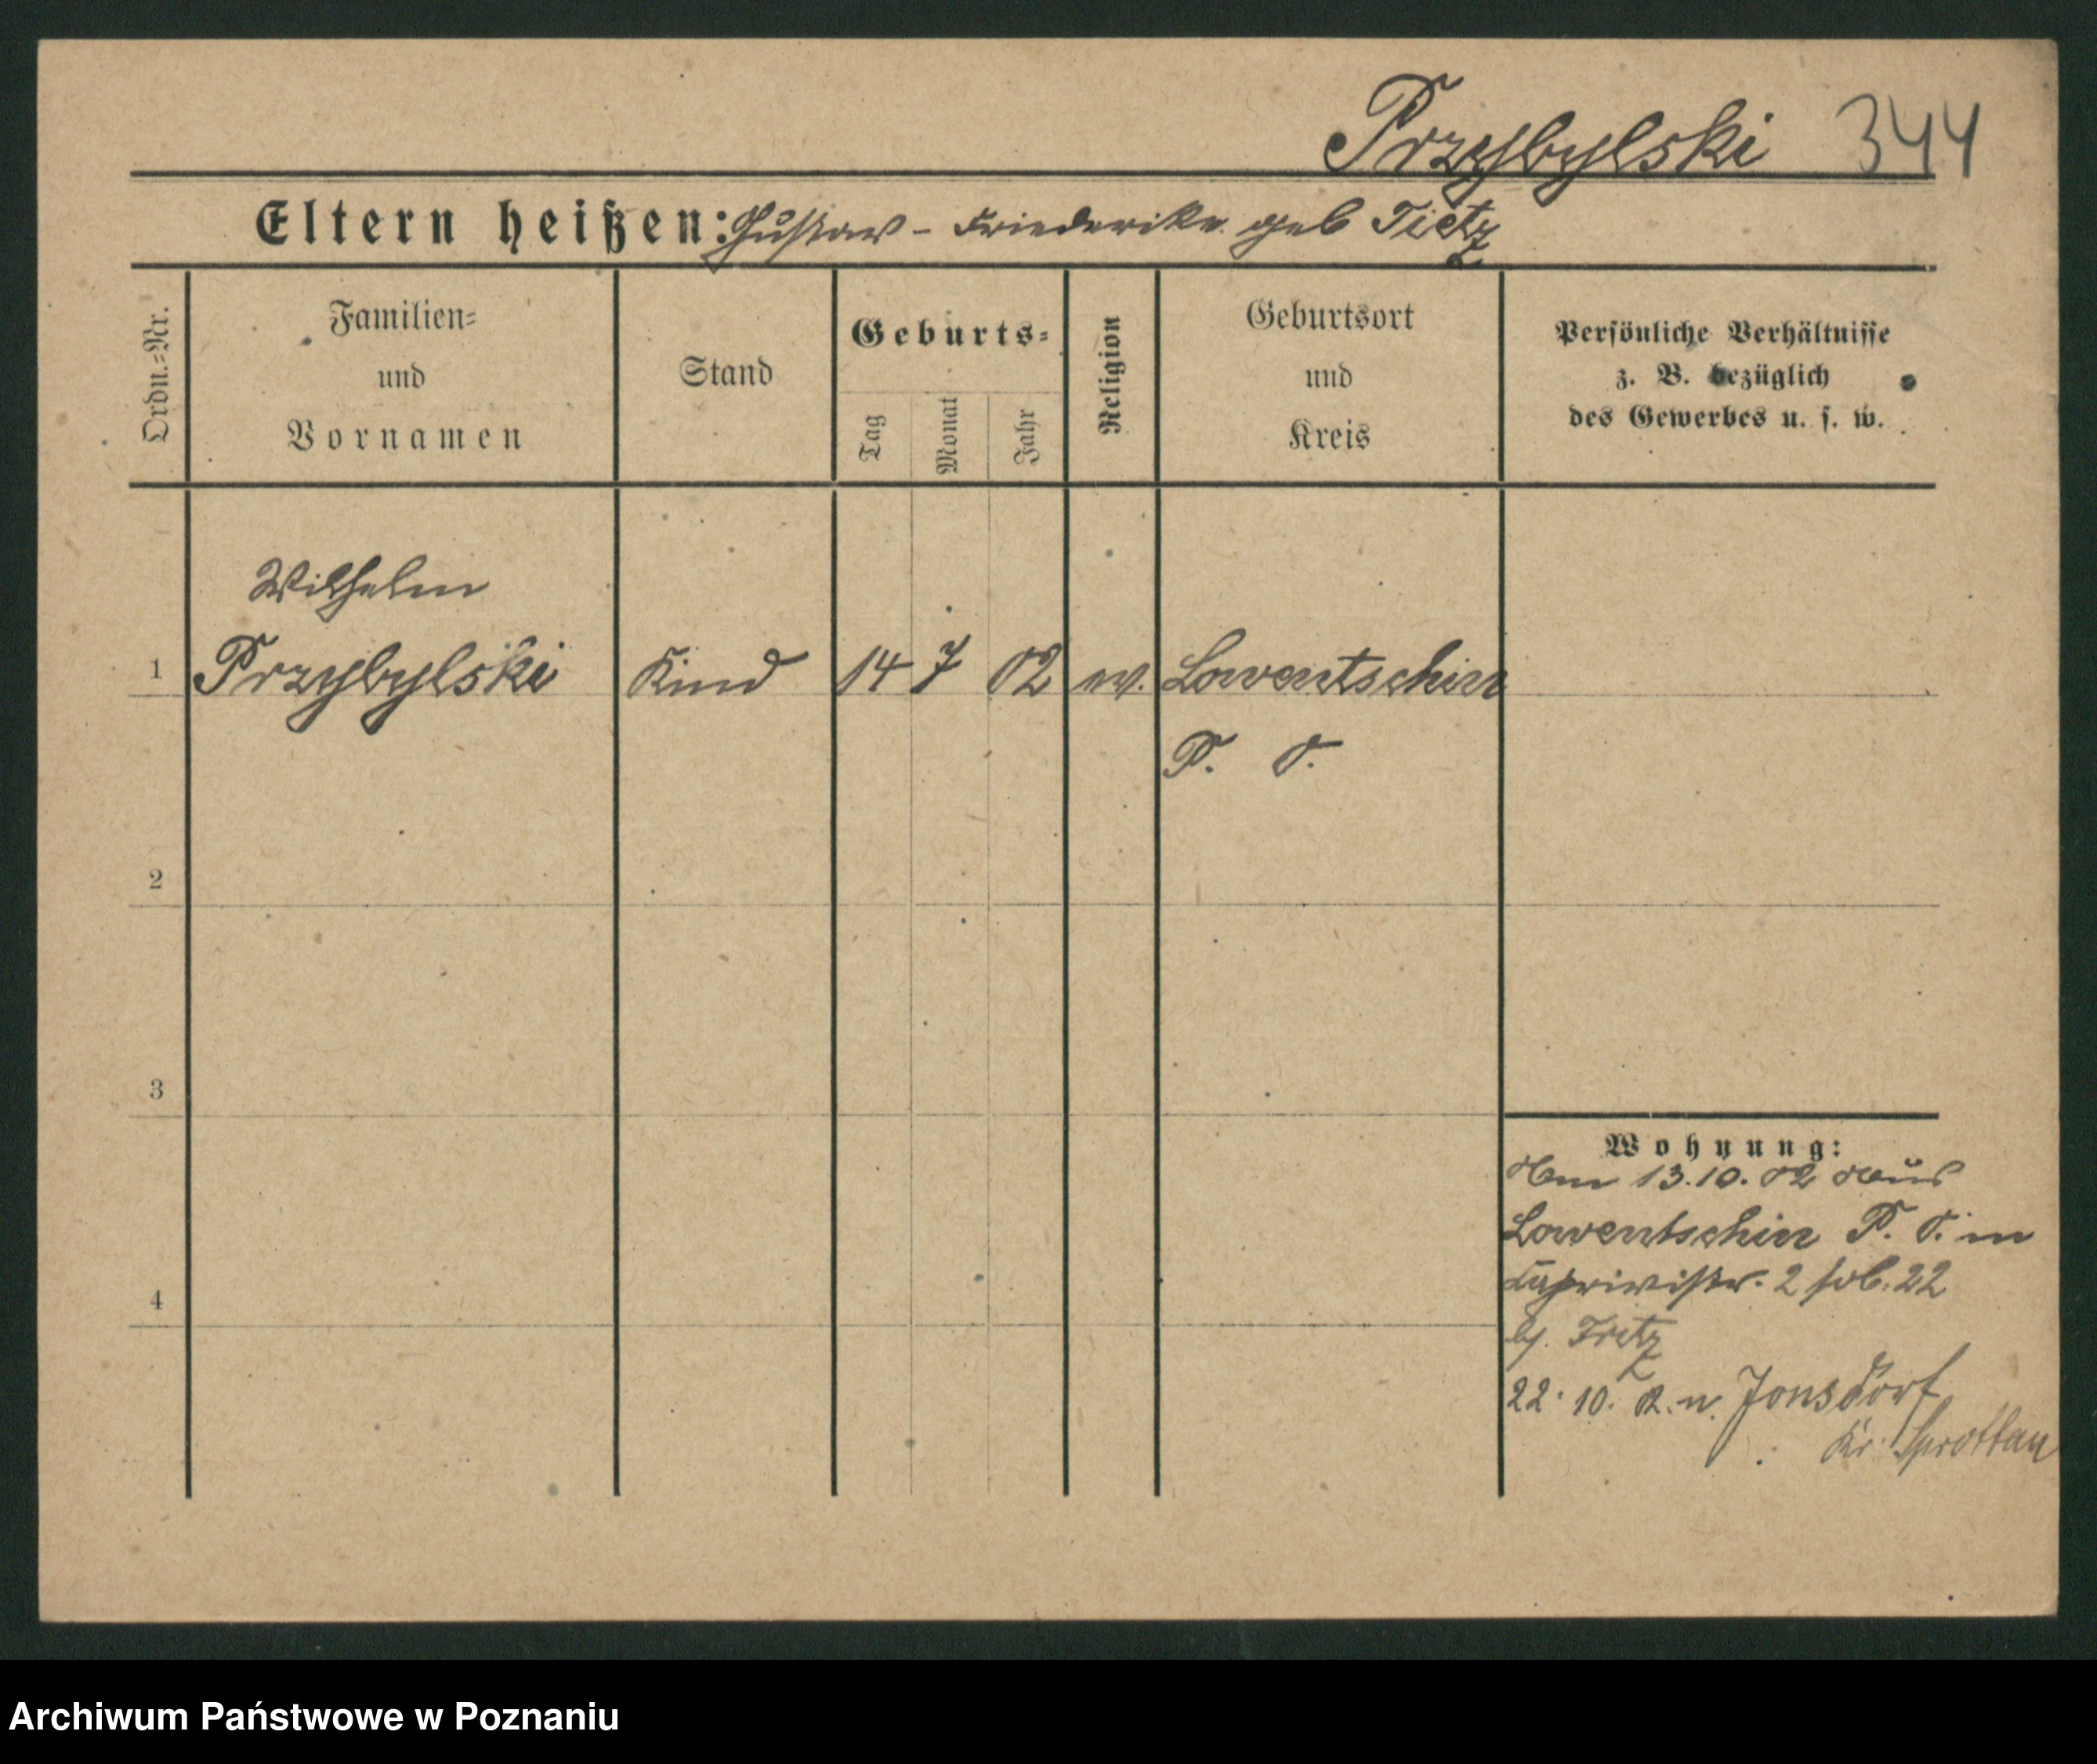 Przybylski 344
Eltern heißen: Gustav - Friederike geb Tietz
Ordn.=Nr.
Familien=
und
Vornamen
Stand
Geburts=
Tag
Monat
Jahr
Religion
Geburtsort
und
Kreis
Persönliche Verhältnisse
z. B. bezüglich
des Gewerbes u. s. w.
Wilhelm
1 Przybylski Kind 14 7 02 ev. Lowentschin
P. O.
2
3
4
Wohnung:
Am 13.10.02 aus
Lowentschin P. O. in
Caprivistr. 2 22
b/.
22. 10. R. n. Jonsdorf
Kr. Sprottau
Archiwum Państwowe w Poznaniu